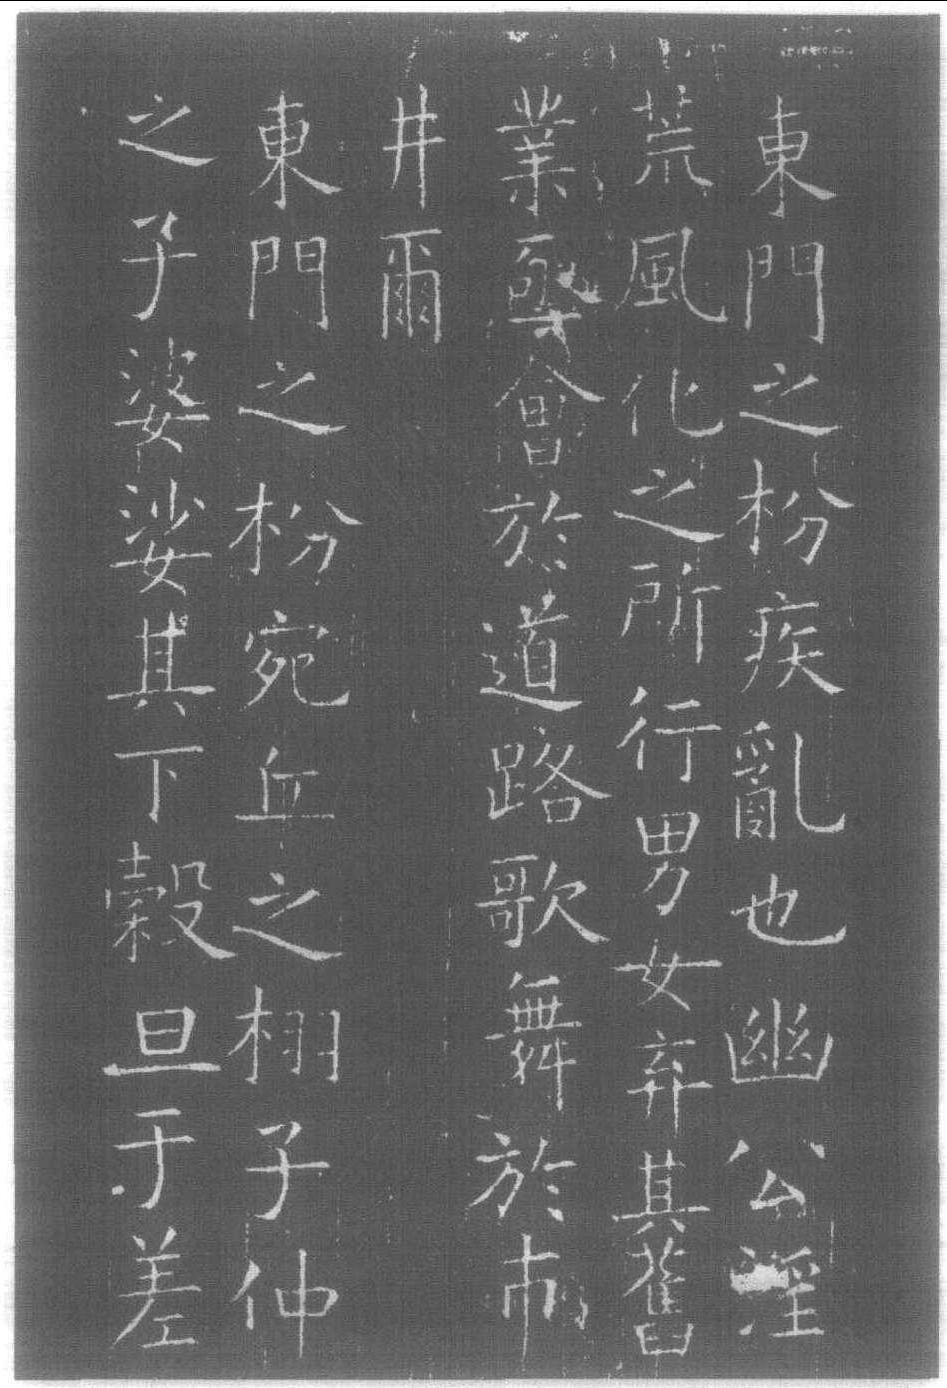 東門之枌疾亂也幽公淫
荒風化之所行男女弃其舊
業亟會於道路歌舞於市
井爾
東門之枌宛丘之栩子仲
之子婆娑其下穀旦于差